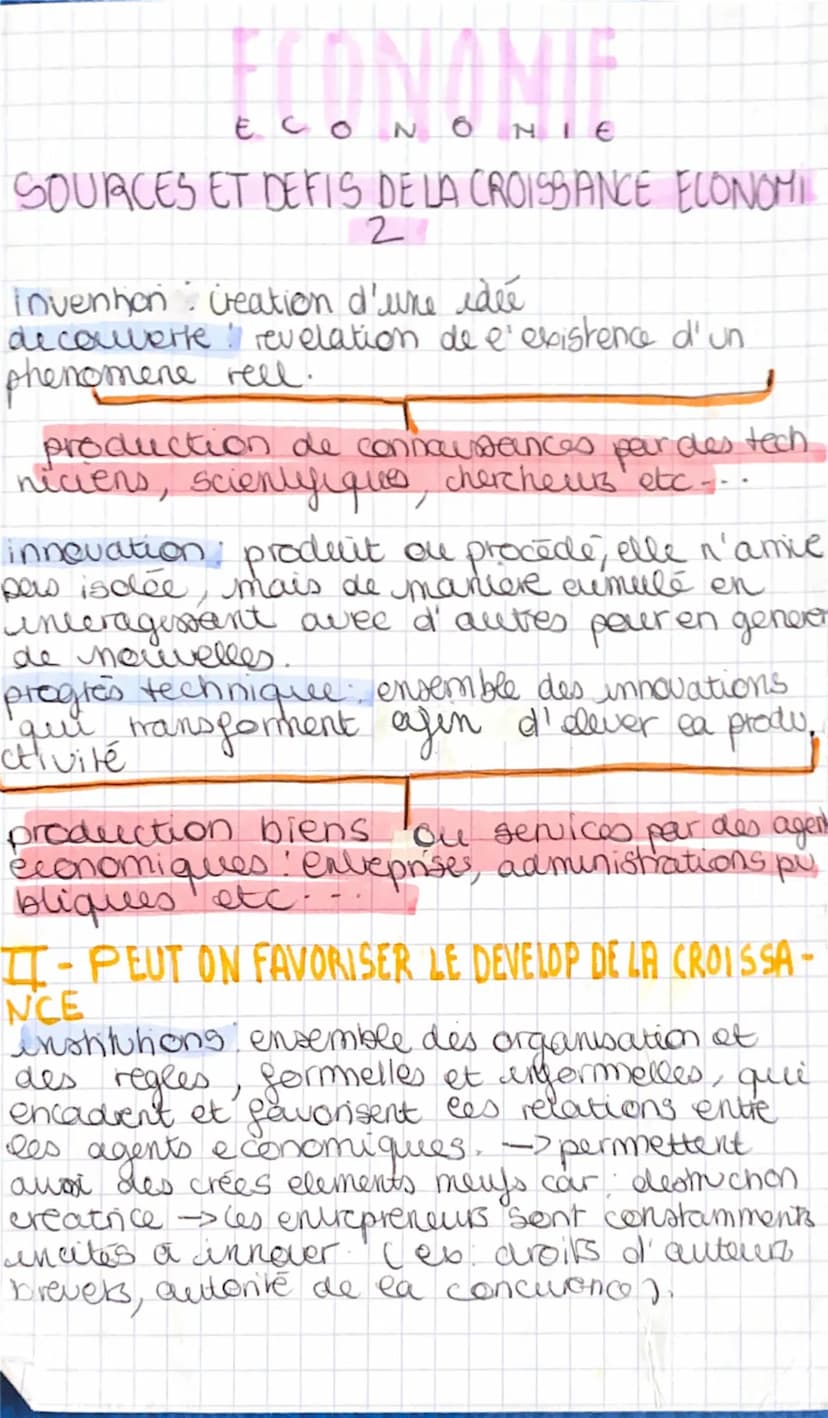 ECONOMIE
ECONOMIE
SOURCES ET DEFIS DE LA CROISSANCE ECONOMI
2
invention : creation d'une idée
decouverte : revelation de l'existence d'un
phenomene reel.
production de connaissances par des tech
niciens, scientifiques, chercheurs etc...
innovation : produit ou procédé, elle n'arrive
pas isolée, mais de manière cumulé en
interagissant avec d'autres pour en generer
de nouvelles.
progrès technique : ensemble des innovations
qui transforment afin d'elever la produ
ctivité
production biens ou services par des agent
économiques : entreprises, administrations pu
bliques etc...
II - PEUT ON FAVORISER LE DEVELOP DE LA CROISSA-
NCE
institutions : ensemble des organisation et
des regles, formelles et informelles, qui
encadrent et favorisent les relations entre
les agents economiques. -> permettent
aussi des crées elements meufs car : destruction
creatrice -> les entrepreneurs sont constamments
incités à innover. (ex : droits d'auteur
brevets, autorité de la concurence).